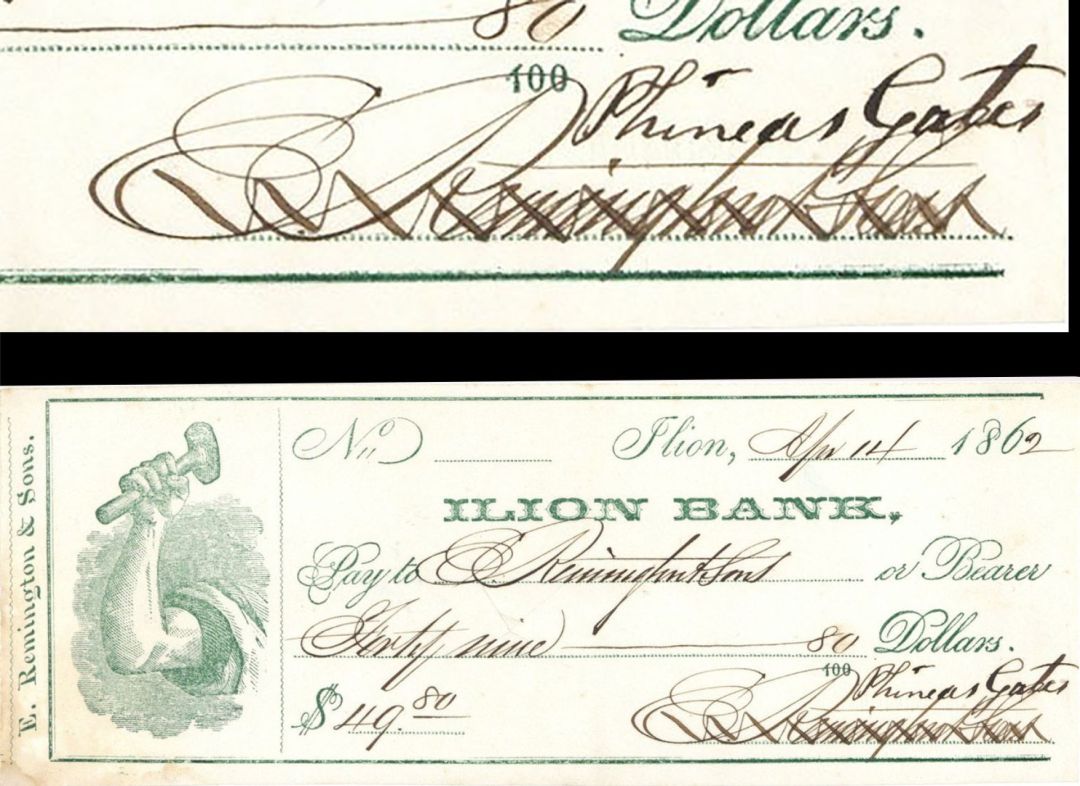 80 Dollars.
100
Phineas Gates
E Remington & Sons
E. Remington & Sons.
No Ilion, Apr 14 1862
ILION BANK,
Pay to E Remington & Sons or Bearer
Forty nine 80 Dollars.
100
Phineas Gates
$ 49.80
E Remington & Sons